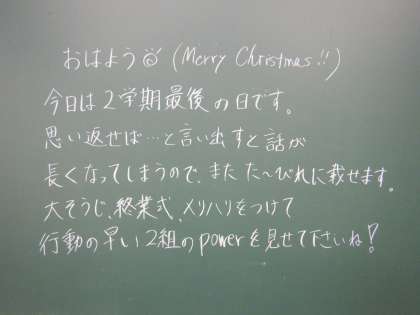 おはよう (Merry Christmas!!)
今日は2学期最後の日です。
思い返せば…と言い出すと話が
長くなってしまうので、また た〜びれに載せます。
大そうじ、終業式、メリハリをつけて
行動の早い2組のpowerを見せて下さいね!